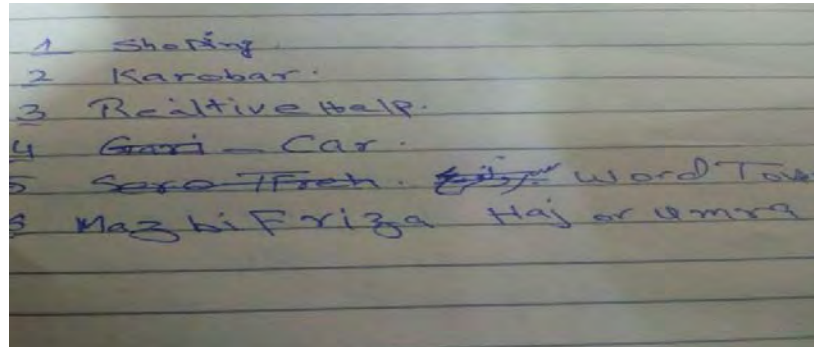 1 Shoping.
2 Karobar.
3 Realtive Help.
4 Gari - Car.
5 Sero Tfreh. Word Tou
6 Mazbi Friza Haj or Umra